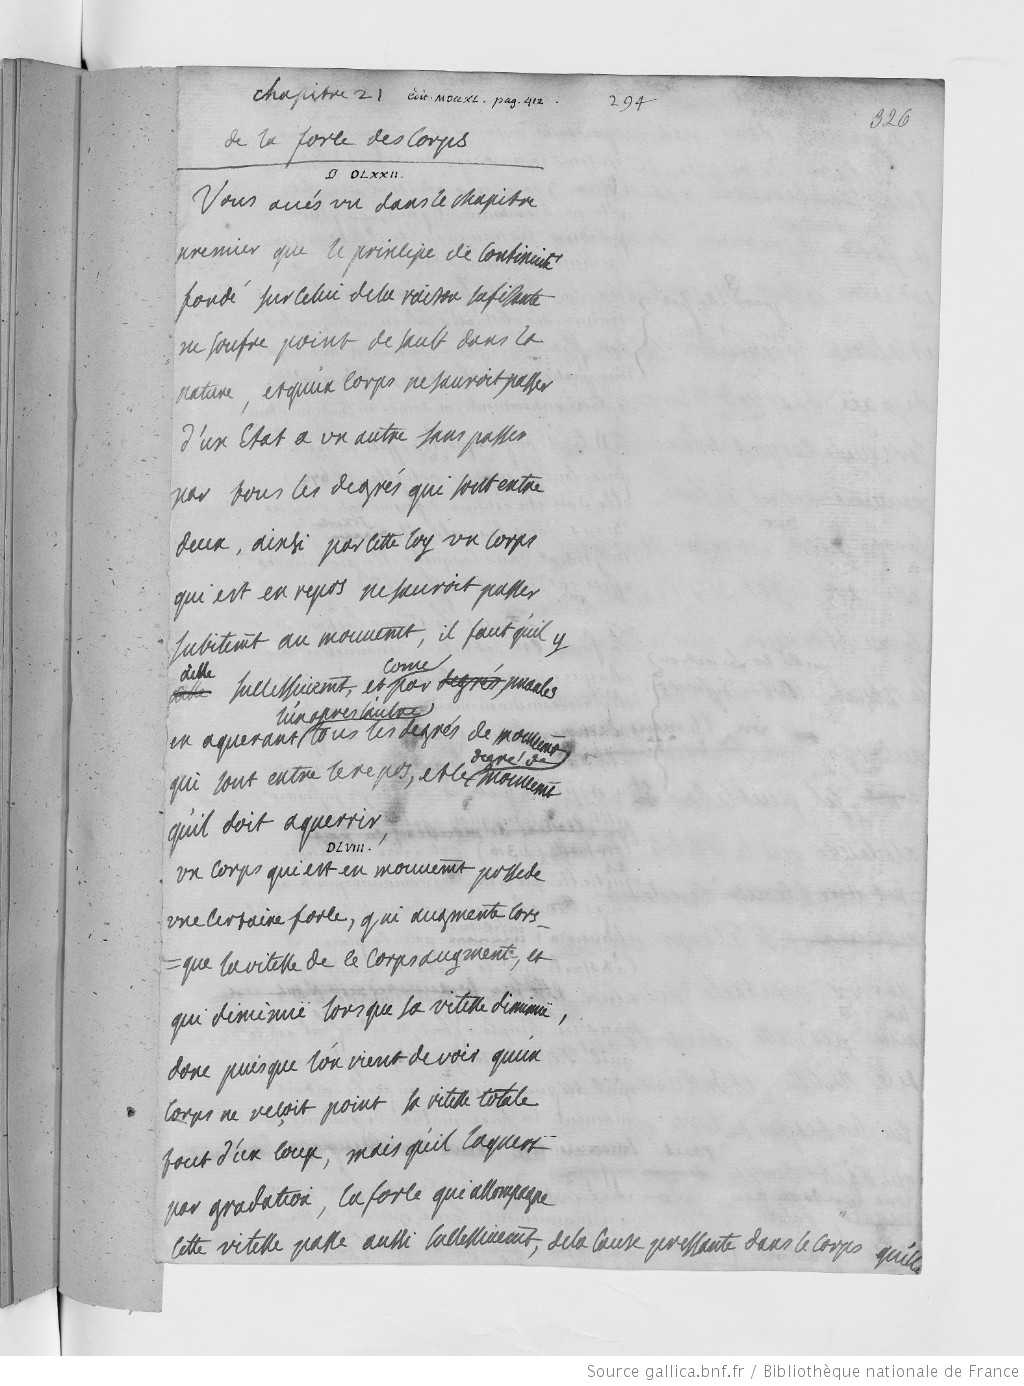 chapitre 21 édit. MDCCXL. pag. 412. 294
326
de la force des corps
§ DLXXII.
Vous avés vu dans le chapitre
premier que le principe de continuité
fondé sur celui de la raison sufisante
ne soufre point de sault dans la
nature, et qu'un corps ne sauroit passer
d'un Etat a un autre sans passer
par tous les degrés qui sont entre
deux, ainsi par cette loy un corps
qui est en repos ne sauroit passer
subitemt au mouuemt, il faut qu'il y
aille successiuemt, et come par degrés nuancés
en aquerant l'un apres l'autre tous les degrés de mouuemt
qui sont entre le repos, et le degré de mouuemt
qu'il doit aquerrir,
DLVIII.
un corps qui est en mouuemt possede
une certaine force, qui augmente lors_
=que la vitesse de ce corps augmente, et
qui diminüe lorsque sa vitesse diminüe,
donc puisque l'on vient de voir qu'un
corps ne reçoit point sa vitesse totale
tout d'un coup, mais qu'il l'aquert
par gradation, la force qui acompagne
cette vitesse passe aussi successiuemt, de la cause pressante dans le corps qu'elle
Source gallica.bnf.fr / Bibliothèque nationale de France